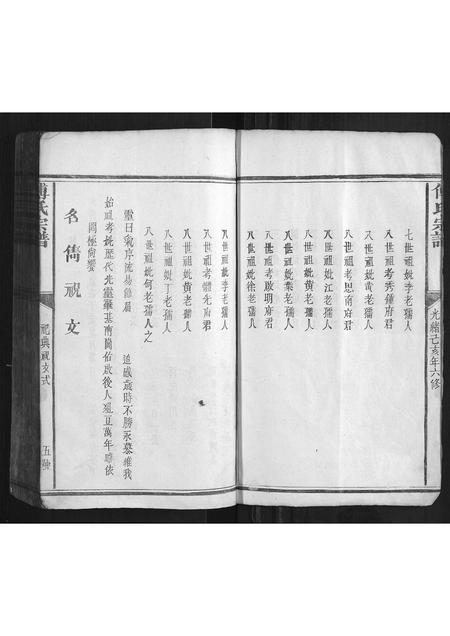 傅氏宗譜
光緒己亥年六修
七世祖妣李老孺人
八世祖考秀鍾府君
八世祖妣黄老孺人
八世祖考思南府君
八世祖妣江老孺人
八世祖妣黄老孺人
八世祖妣葉老孺人
八世祖考啟明府君
八世祖妣徐老孺人
八世祖妣李老孺人
八世祖考體先府君
八世祖妣黄老孺人
八世祖妣丁老孺人
八世祖妣何老孺人之
靈曰氣序流易雖屆 追感歲時不勝永慕維我
始祖考妣歷代先靈肇基南岡佑啟後人俎豆萬年唯依
罔極尚饗
名儁祝文
傅氏宗譜
祀典祝文式
五